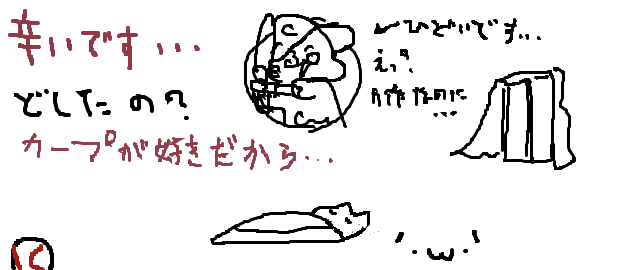 辛いです...
どしたの?
カープが好きだから...
ひどいです...
えっ?
力作なのに
...
'・ω・'